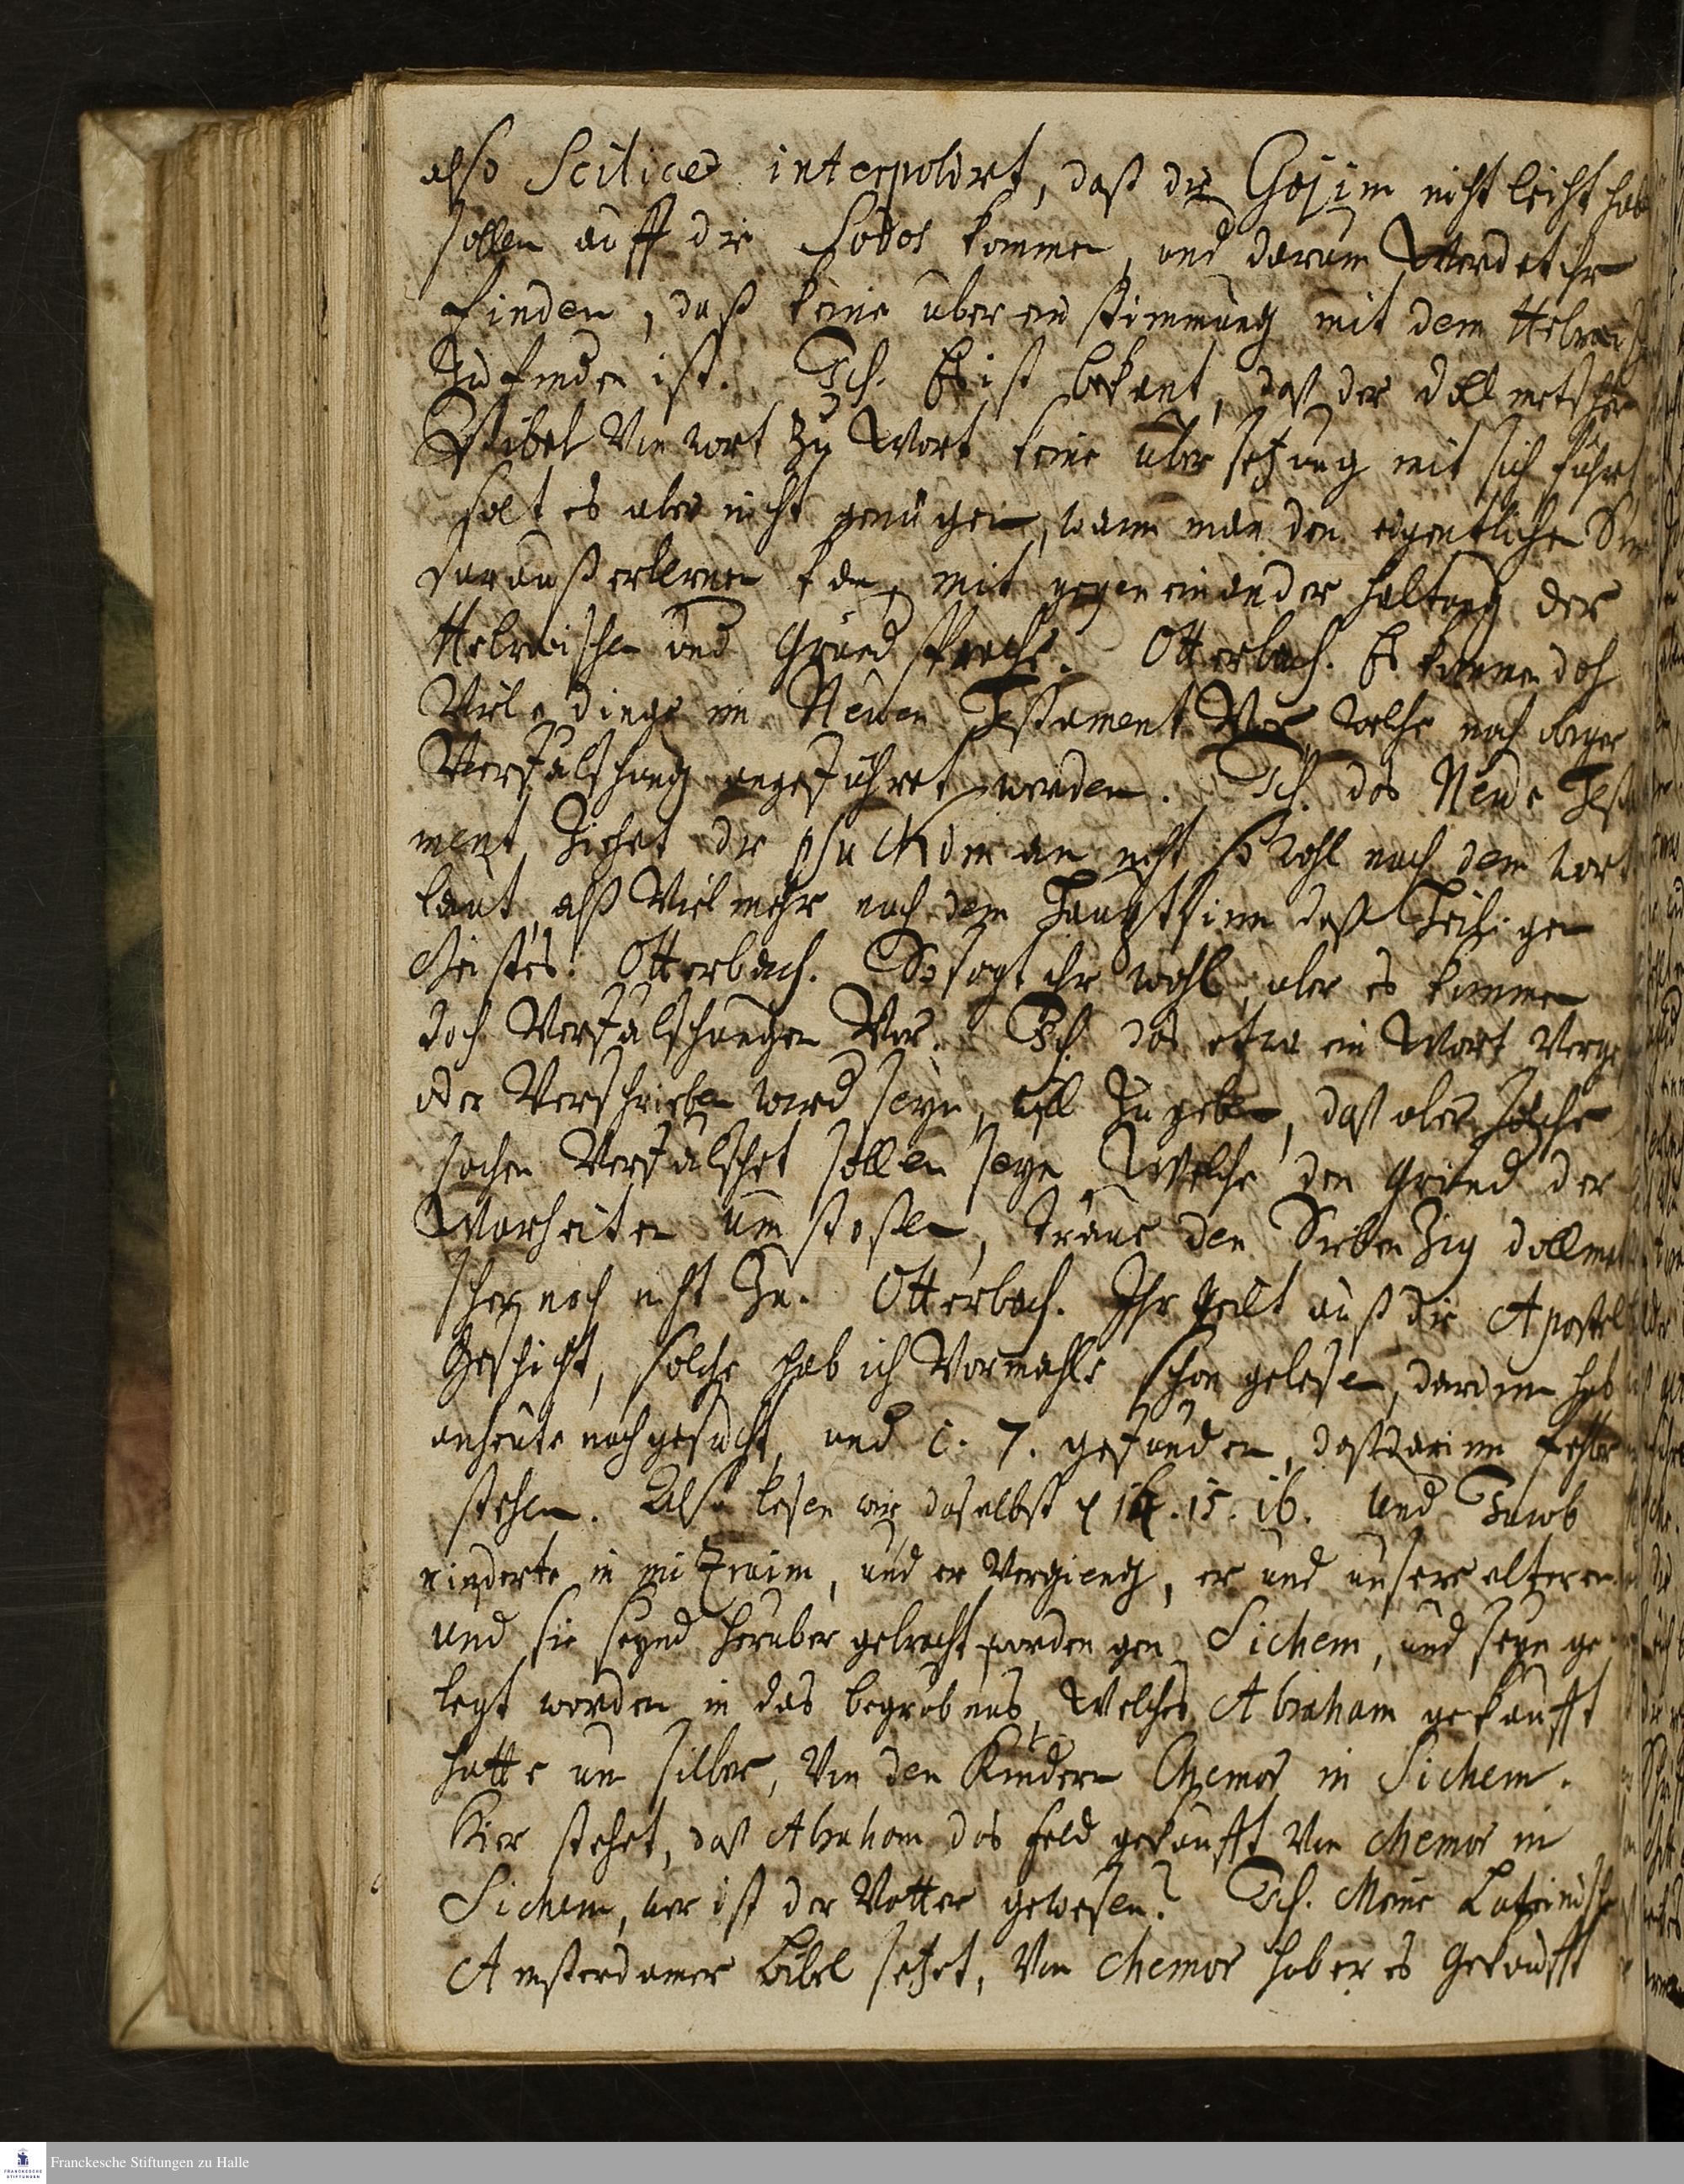 also Scilicet interpolirt, daß die Gojim nicht leicht hab
sollen auff die Sodos kommen, und darum Werdet ihr
finden, daß keine uber ein stimmung mit dem Hebrais
zu finden ist. Ich. Es ist bekant, daß der dollmetscher
Bibel Von wort zu Wort keine uber setzung mit sich führt
solt es aber nicht genügen, wann man den eigentlichen Sin
darauß erlernen kan, mit gegen einander haltung der
Hebraischen und Grund sprache. Otterbach. Es kommen doch
Viele dinge im Neuen Testament Vor, welche nach eurer
Verfälschung angeführet werden. Ich. das Neue Testa
ment ziehet die psukim an nicht so wohl nach dem wort
laut, alß Viel mehr nach dem Haubt sinn deß Heiligen
Geistes. Otterbach. So sagt ihr wohl, aber es kommen
doch Verfälschungen Vor. Ich. das etwa ein Wort Verge
oder Verschrieben wird seyn, will zu geben, daß aber solche
sachen Verfälschet sollen seyn, Welche den Grund der
Warheiten um stosen, traue den Siben zig dollmet
scher noch nicht zu. Otterbach. Ihr halt auß die Apostel
Geschicht, solche hab ich Vormahls schon gelesen, darinn hab
anheute nach gesucht, und c. 7. gefunden, daß darinn fehler
stehen. Also lesen wir daselbst 14. 15. 16. und Jacob
niderte in mitzraim, und er Vergieng, er und unsere elteren
und sie seynd heruber gebracht worden gen Sichem, und seyn ge
legt worden in das begräbnus, Welches Abraham gekaufft
hatte um silber, Von den Kindern Chemor in Sichem.
Hier stehet, daß Abraham das feld gekaufft Von chemor in
Sichem, wer ist der Vatter gewesen? Ich. Meine Lateinische
Amsterdamer Bibel setzet, Von chemor hab er es gekaufft
Franckesche Stiftungen zu Halle